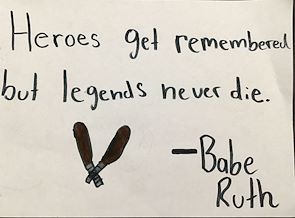 Heroes get remembered
but legends never die.
-Babe
Ruth